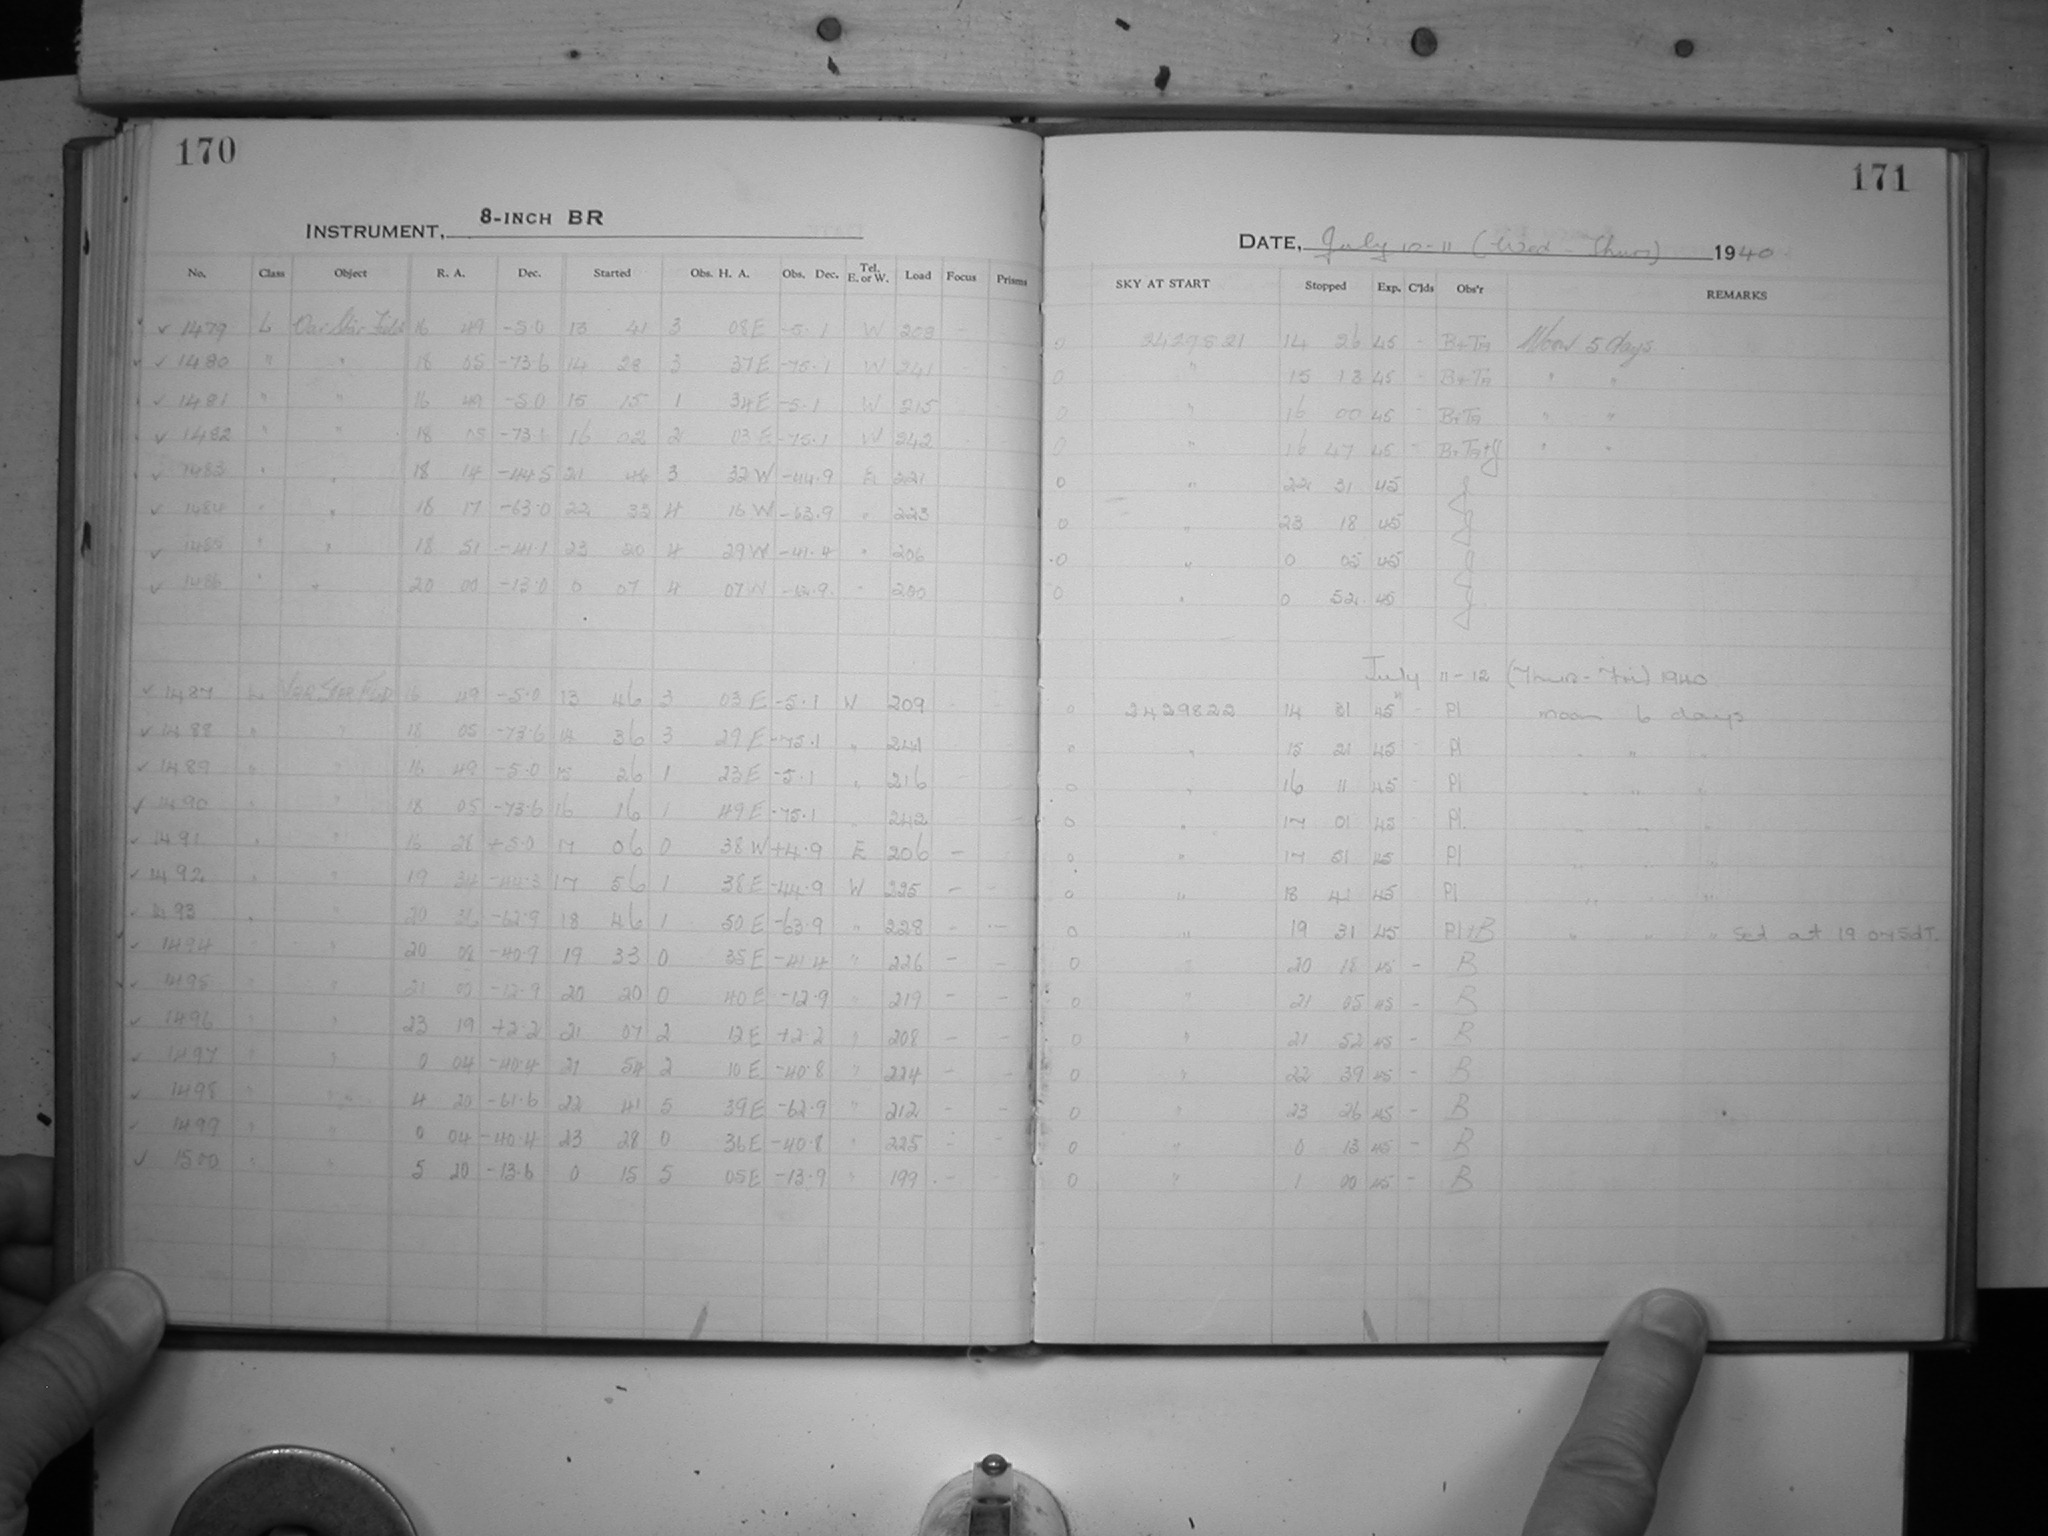 170
INSTRUMENT, 8-INCH BR
No. Class Object R. A. Dec. Started Obs. H. A. Obs. Dec. Tel. E. or W. Load Focus Prisms
✓ 1479 L Var Star Field 16 49 -5.0 13 41 3 08 E -5.1 W 203
✓ 1480 " " 18 05 -73.6 14 28 3 37 E -75.1 W 241
✓ 1481 " " 16 49 -5.0 15 15 1 34 E -5.1 W 215
✓ 1482 " " 18 05 -73. 16 02 2 03 E -75.1 W 242
✓ 1483 " " 18 14 -44.5 21 46 3 32 W -44.9 E 221
✓ 1484 " " 18 17 -63.0 22 33 4 16 W -63.9 " 223
✓ 1485 " " 18 51 -41.1 23 20 4 29 W -41.4 " 206
✓ 1486 " " 20 00 -13.0 0 07 4 07 W -12.9 " 200
✓ 1487 L VAR STAR FLD 16 49 -5.0 13 46 3 03 E -5.1 W 209
✓ 1488 " " 18 05 -73.6 14 36 3 29 E -75.1 " 241
✓ 1489 " " 16 49 -5.0 15 26 1 23 E -5.1 " 216
✓ 1490 " " 18 05 -73.6 16 16 1 49 E -75.1 " 242
✓ 1491 " " 16 28 +5.0 17 06 0 38 W +4.9 E 206 -
✓ 1492 " " 19 34 -44.3 17 56 1 38 E -44.9 W 225 - -
✓ 1493 " " 20 36 -62.9 18 46 1 50 E -63.9 " 228 - -
✓ 1494 " " 20 08 -40.9 19 33 0 35 E -41.4 " 226 - -
✓ 1495 " " 21 00 -12.9 20 20 0 40 E -12.9 " 219 - -
✓ 1496 " " 23 19 +2.2 21 07 2 12 E +2.2 " 208 - -
✓ 1497 " " 0 04 -40.4 21 54 2 10 E -40.8 " 224 - -
✓ 1498 " " 4 20 -61.6 22 41 5 39 E -62.9 " 212 - -
✓ 1499 " " 0 04 -40.4 23 28 0 36 E -40.8 " 225 - -
✓ 1500 " " 5 20 -13.6 0 15 5 05 E -13.9 " 199 - -
171
DATE, July 10-11 (Wed - Thurs) 1940
SKY AT START Stopped Exp. C'lds Obs'r REMARKS
0 2429821 14 26 45 - B+Ta Moon 5 days
0 " 15 13 45 - B+Ta " "
0 " 16 00 45 - B+Ta " "
0 " 16 47 45 - " "
0 " 22 31 45
0 " 23 18 45
0 " 0 05 45
0 " 0 52 45
July 11-12 (Thurs-Fri) 1940
0 2429822 14 31 45 - Pl moon 6 days
0 " 15 21 45 - Pl " " "
0 " 16 11 45 - Pl " " "
0 " 17 01 45 Pl. " " "
0 " 17 51 45 Pl " " "
0 " 18 41 45 Pl " " "
0 " 19 31 45 Pl+B " " " Set at 19 07 SdT.
0 " 20 18 45 - B
0 " 21 05 45 - B
0 " 21 52 45 - B
0 " 22 39 45 - B
0 " 23 26 45 - B
0 " 0 13 45 - B
0 " 1 00 45 - B